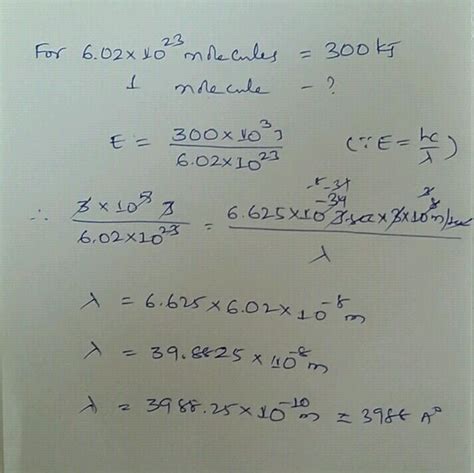 For 6.02×10²³ molecules = 300 kJ
1 molecule – ?
E = 300×10³J / 6.02×10²³ (∵ E = hc/λ)
∴ 3×10⁵ J / 6.02×10²³ = 6.625×10⁻³⁴ J.sec×3×10⁸ m/sec / λ
λ = 6.625×6.02×10⁻⁸ m
λ = 39.8825×10⁻⁸ m
λ = 3988.25×10⁻¹⁰ m = 3988 A°